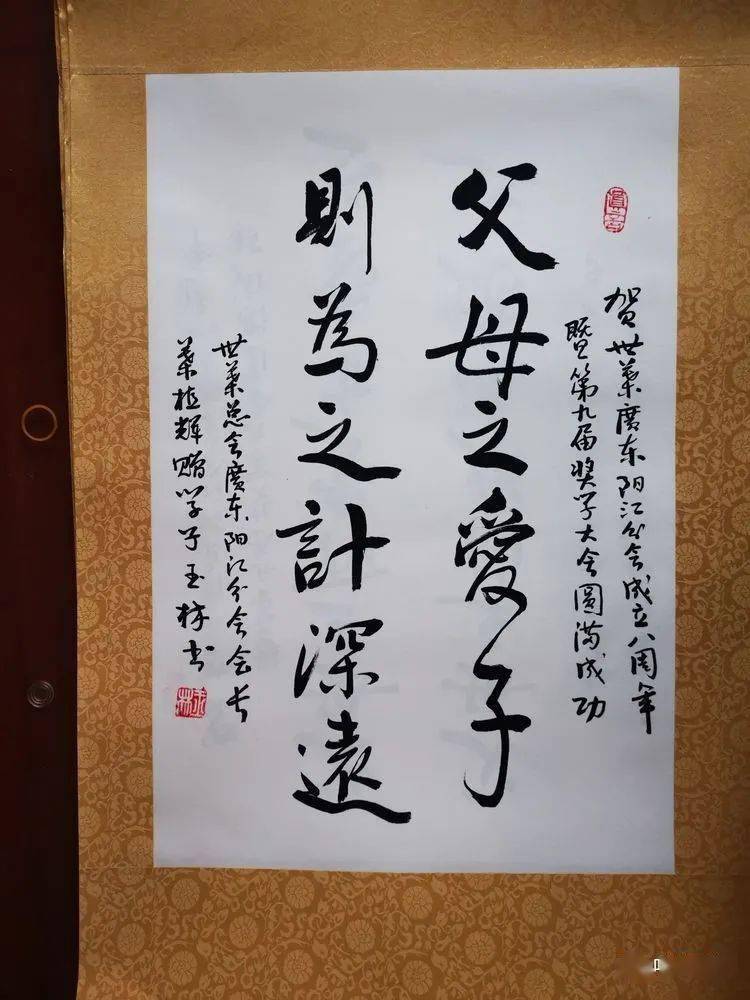 賀世葉廣东阳江分会成立八周年
暨第九届奖学大会圆满成功
父母之愛子
則為之計深遠
世葉总会廣东阳江分会会长
葉植辉赠学子玉林书